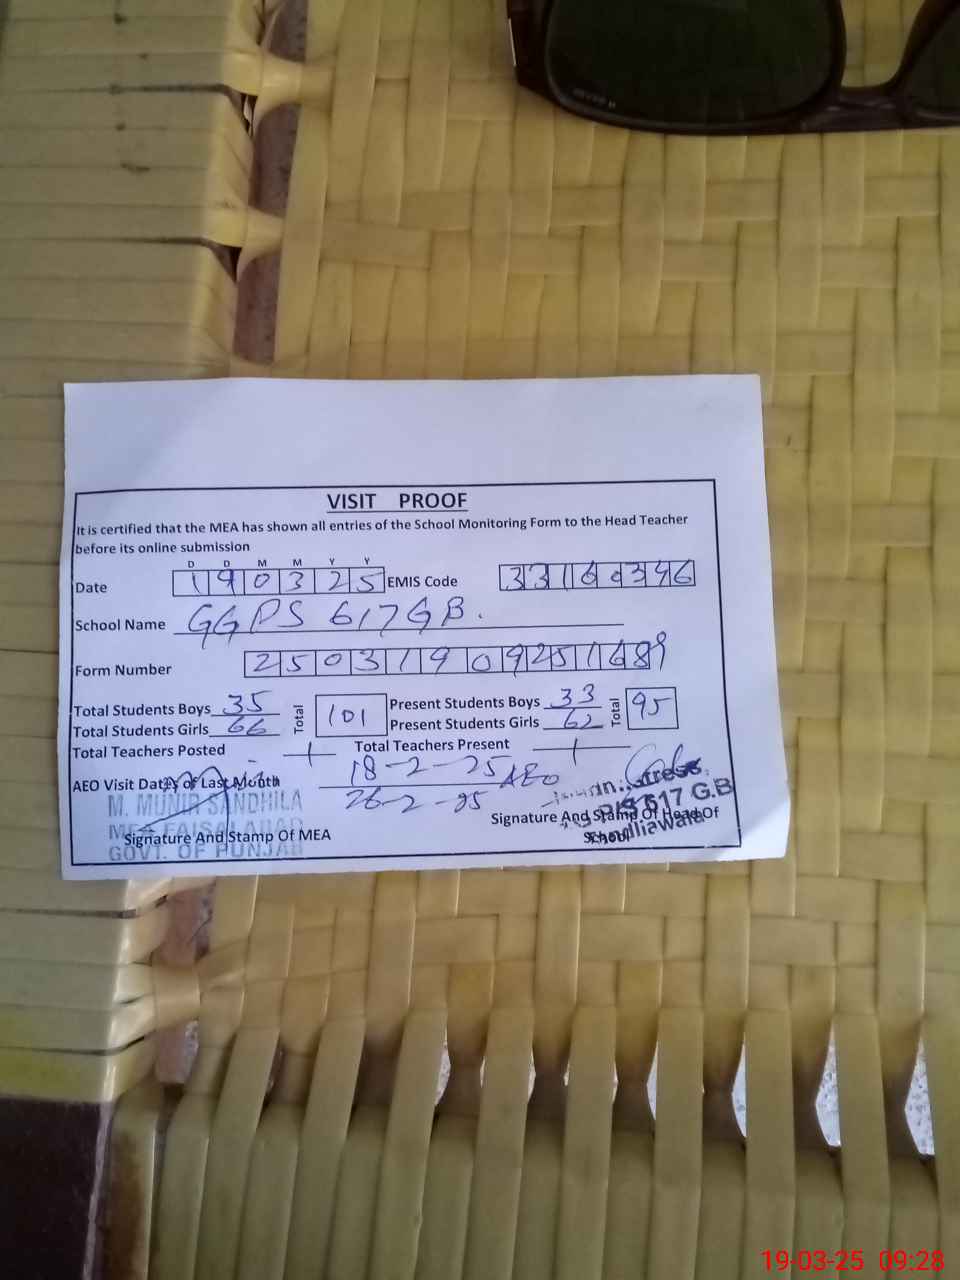 VISIT PROOF
It is certified that the MEA has shown all entries of the School Monitoring Form to the Head Teacher
before its online submission
D D M M Y Y
Date 190325 EMIS Code 33160346
School Name GGPS 617 GB.
Form Number 25031909251689
Total Students Boys 35 Total 101 Present Students Boys 33 Total 95
Total Students Girls 66 Present Students Girls 62
Total Teachers Posted 1 Total Teachers Present 1
AEO Visit Dates of Last Month 18-2-25 AEO
26-2-25
M. MUNIR SANDHILA
MEA FAISALABAD
GOVT. OF PUNJAB
Signature And Stamp Of MEA
617 G.B
Signature And Stamp Of Head Of
School
19-03-25 09:28